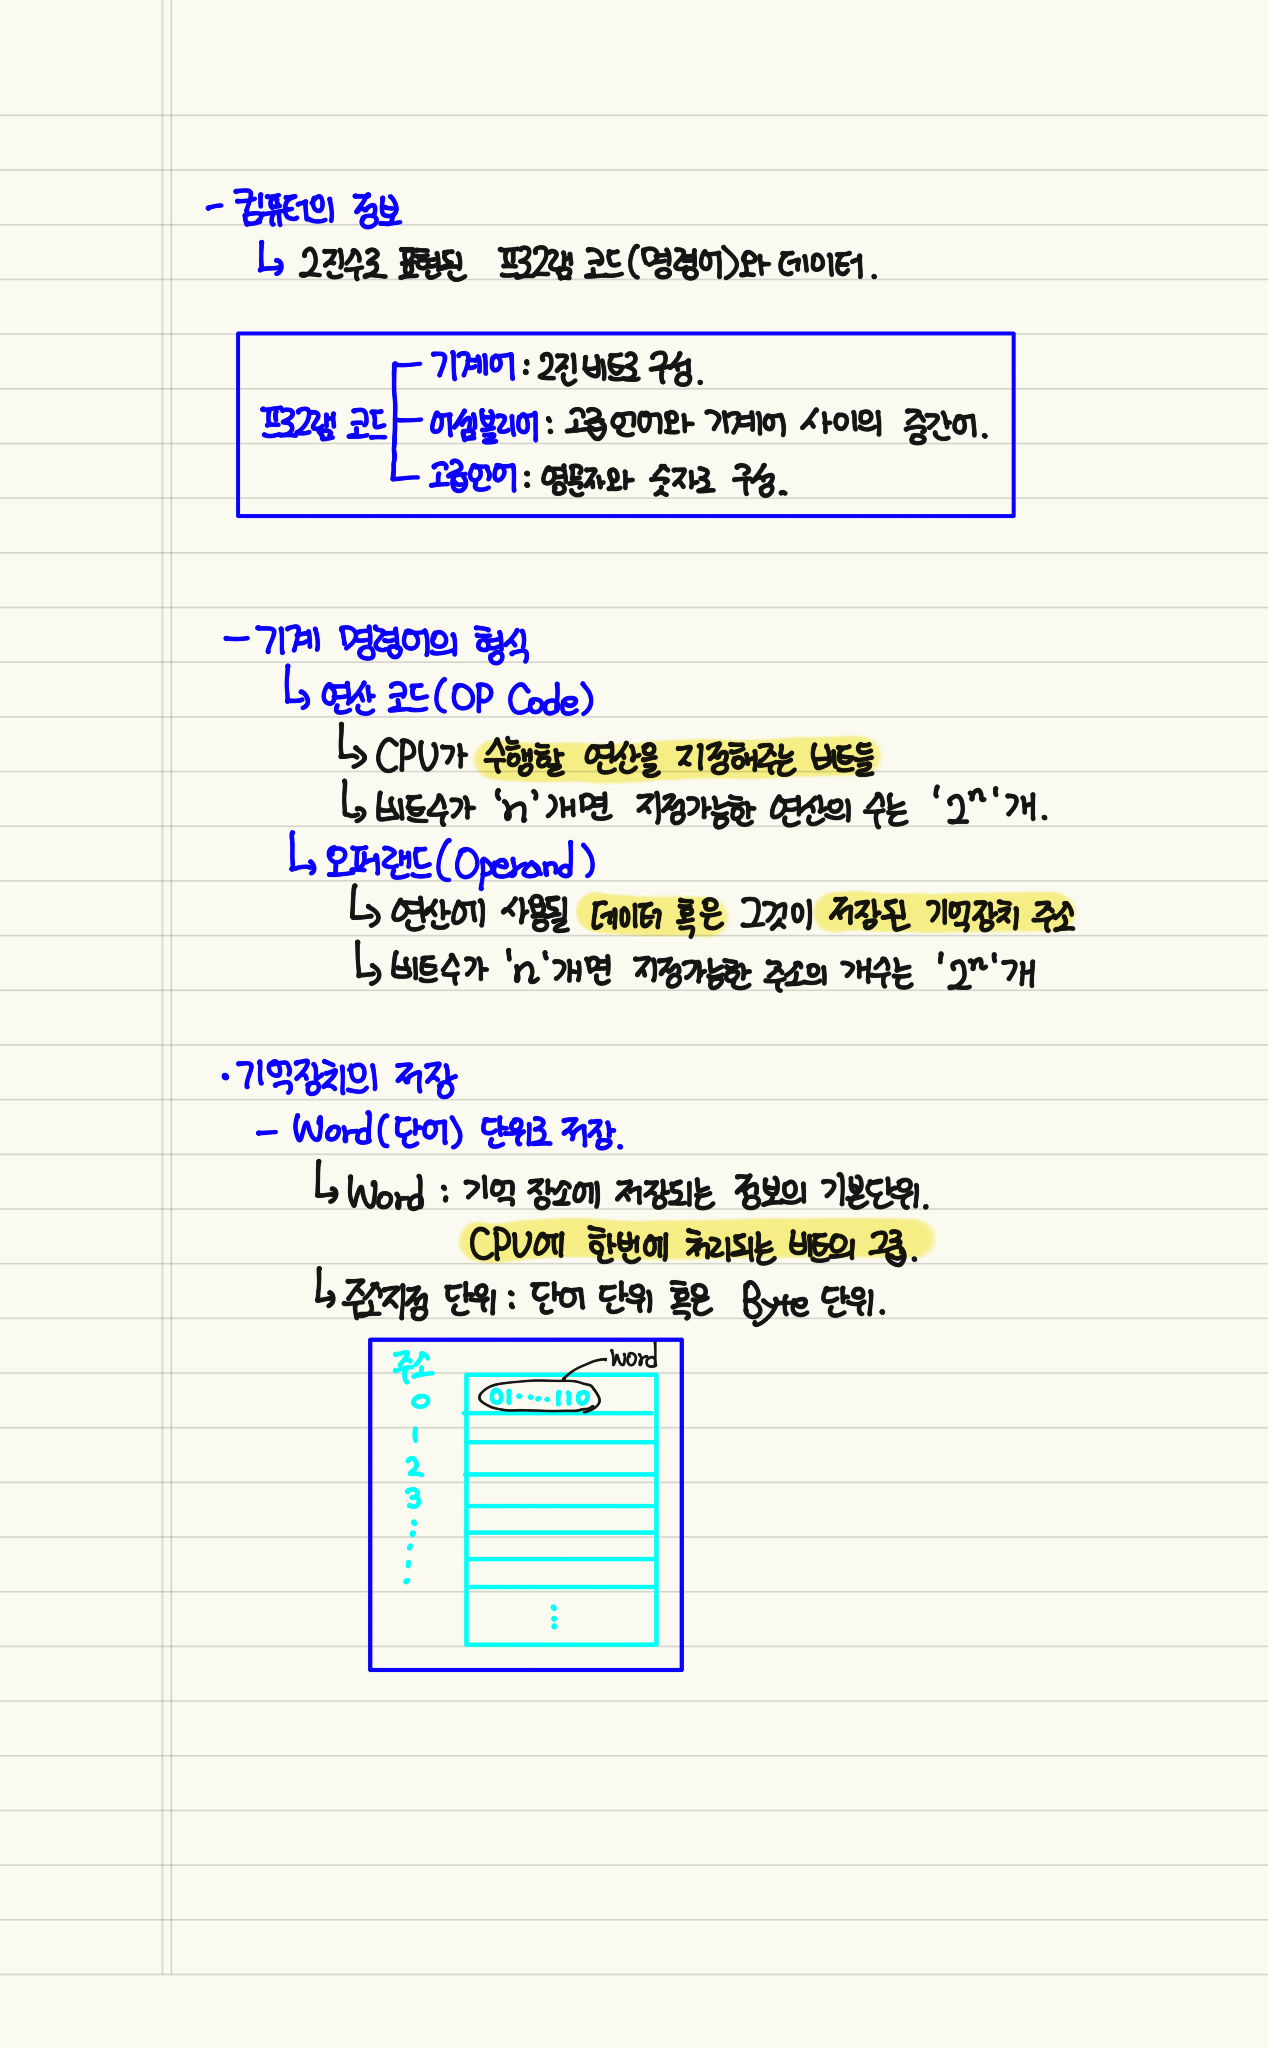 - 컴퓨터의 정보
↳ 2진수로 표현된 프로그램 코드(명령어)와 데이터.
기계어 : 2진 비트로 구성.
프로그램 코드 어셈블리어 : 고급언어와 기계어 사이의 중간어.
고급언어 : 영문자와 숫자로 구성.
- 기계 명령어의 형식
↳ 연산 코드(OP Code)
↳ CPU가 수행할 연산을 지정해주는 비트들
↳ 비트수가 'n'개면 지정가능한 연산의 수는 '2ⁿ'개.
↳ 오퍼랜드(Operand)
↳ 연산에 사용될 데이터 혹은 그것이 저장된 기억장치 주소
↳ 비트수가 'n'개면 지정가능한 주소의 개수는 '2ⁿ'개
· 기억장치의 저장
- Word(단어) 단위로 저장.
↳ Word : 기억 장소에 저장되는 정보의 기본단위.
CPU에 한번에 처리되는 비트의 그룹.
↳ 주소지정 단위 : 단어 단위 혹은 Byte 단위.
주소 word
0 01·····110
1
2
3